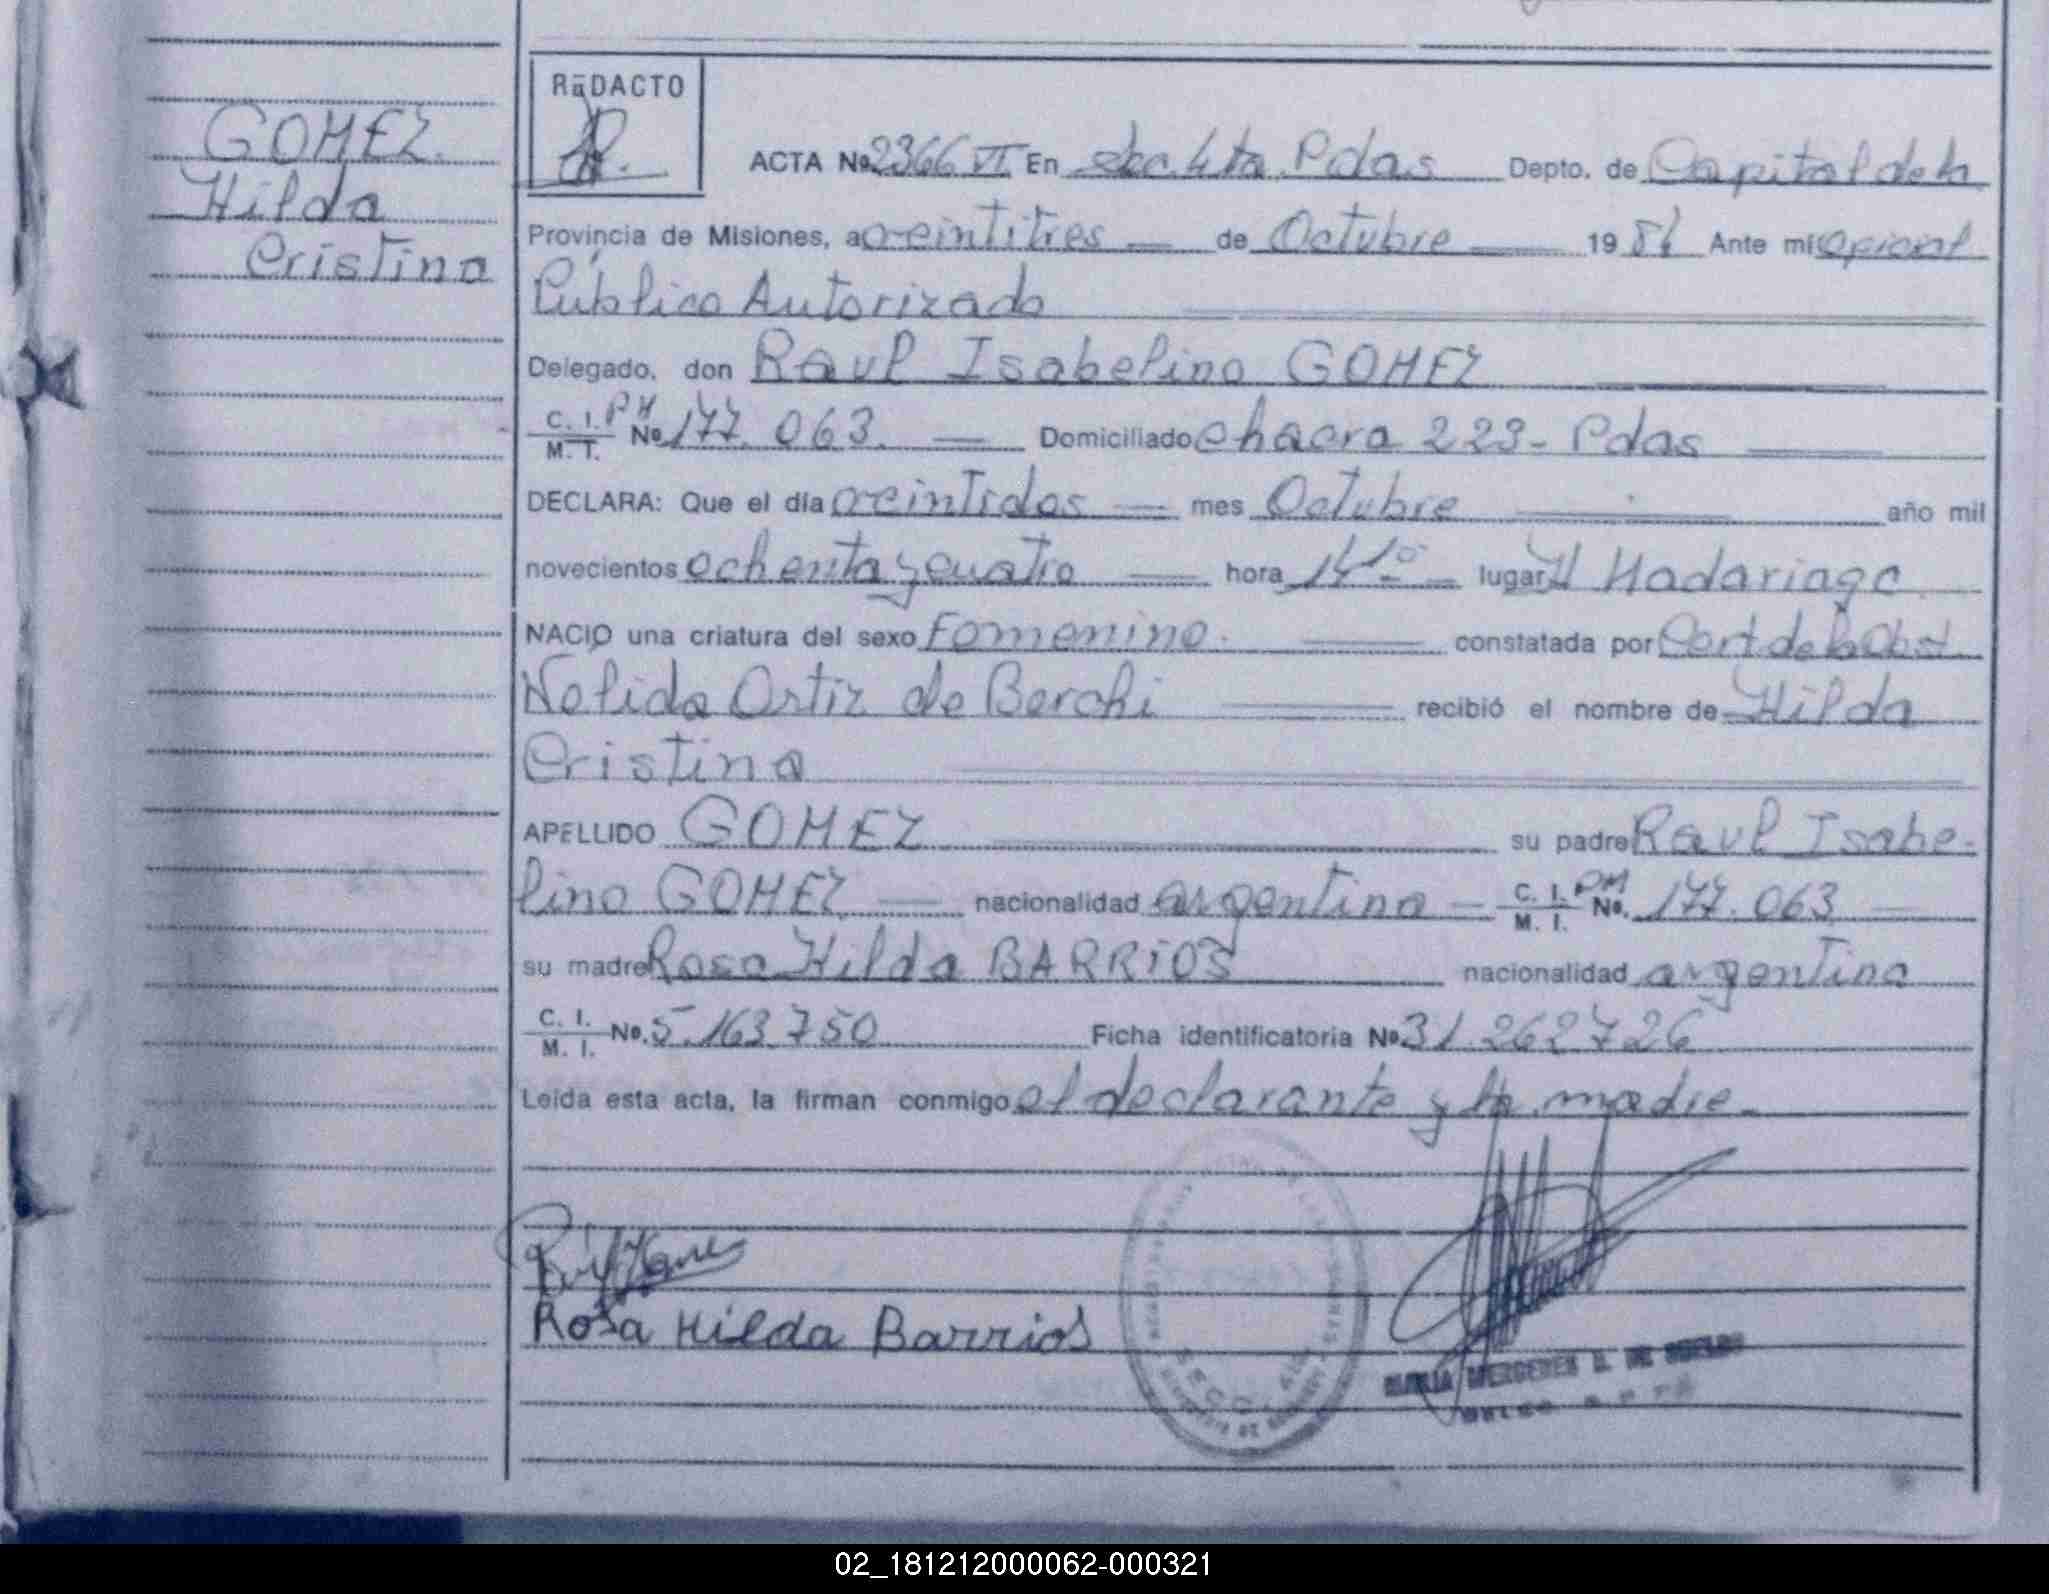 GOMEZ
Hilda
Cristina
REDACTO
ACTA No 2366 VI En Sec. 4ta. Pdas Depto. de Capital de la
Provincia de Misiones, a veintitres de Octubre 1984 Ante mi Oficial
Público Autorizado
Delegado, don Raul Isabelino GOMEZ
C. I. M. I. PM No 177.063. Domiciliado Chacra 223 - Pdas
DECLARA: Que el día veintidos mes Octubre año mil
novecientos ochenta y cuatro hora lugar H Madariaga
NACIO una criatura del sexo Femenino. constatada por Cert. de la Obst
Nelida Ortiz de Berchi recibió el nombre de Hilda
Cristina
APELLIDO GOMEZ su padre Raul Isabe-
lino GOMEZ nacionalidad argentina C. I. M. I. PM No. 177.063
su madre Rosa Hilda BARRIOS nacionalidad argentina
C. I. M. I. No. 5.163.750 Ficha identificatoria No 31.262726
Leída esta acta, la firman conmigo el declarante y la madre.
Rosa Hilda Barrios
02_181212000062-000321